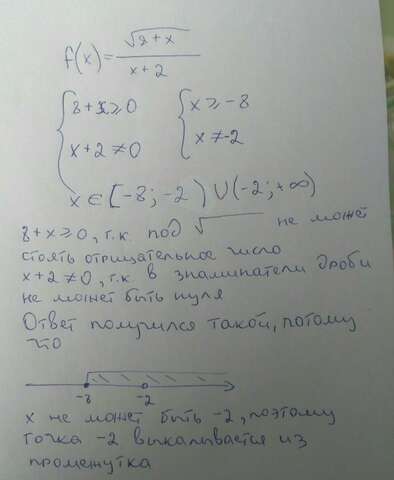 f(x) = √8+x / x+2
{ 8+x ≥ 0 { x ≥ -8
x+2 ≠ 0 x ≠ -2
x ∈ [-8; -2) ∪ (-2; +∞)
8+x ≥ 0, т.к. под √ не может
стоять отрицательное число
x+2 ≠ 0, т.к. в знаминатели дроби
не может быть нуля
Ответ получился такой, потому
что
-8 -2
x не может быть -2, поэтому
точка -2 выкалывается из
промежутка